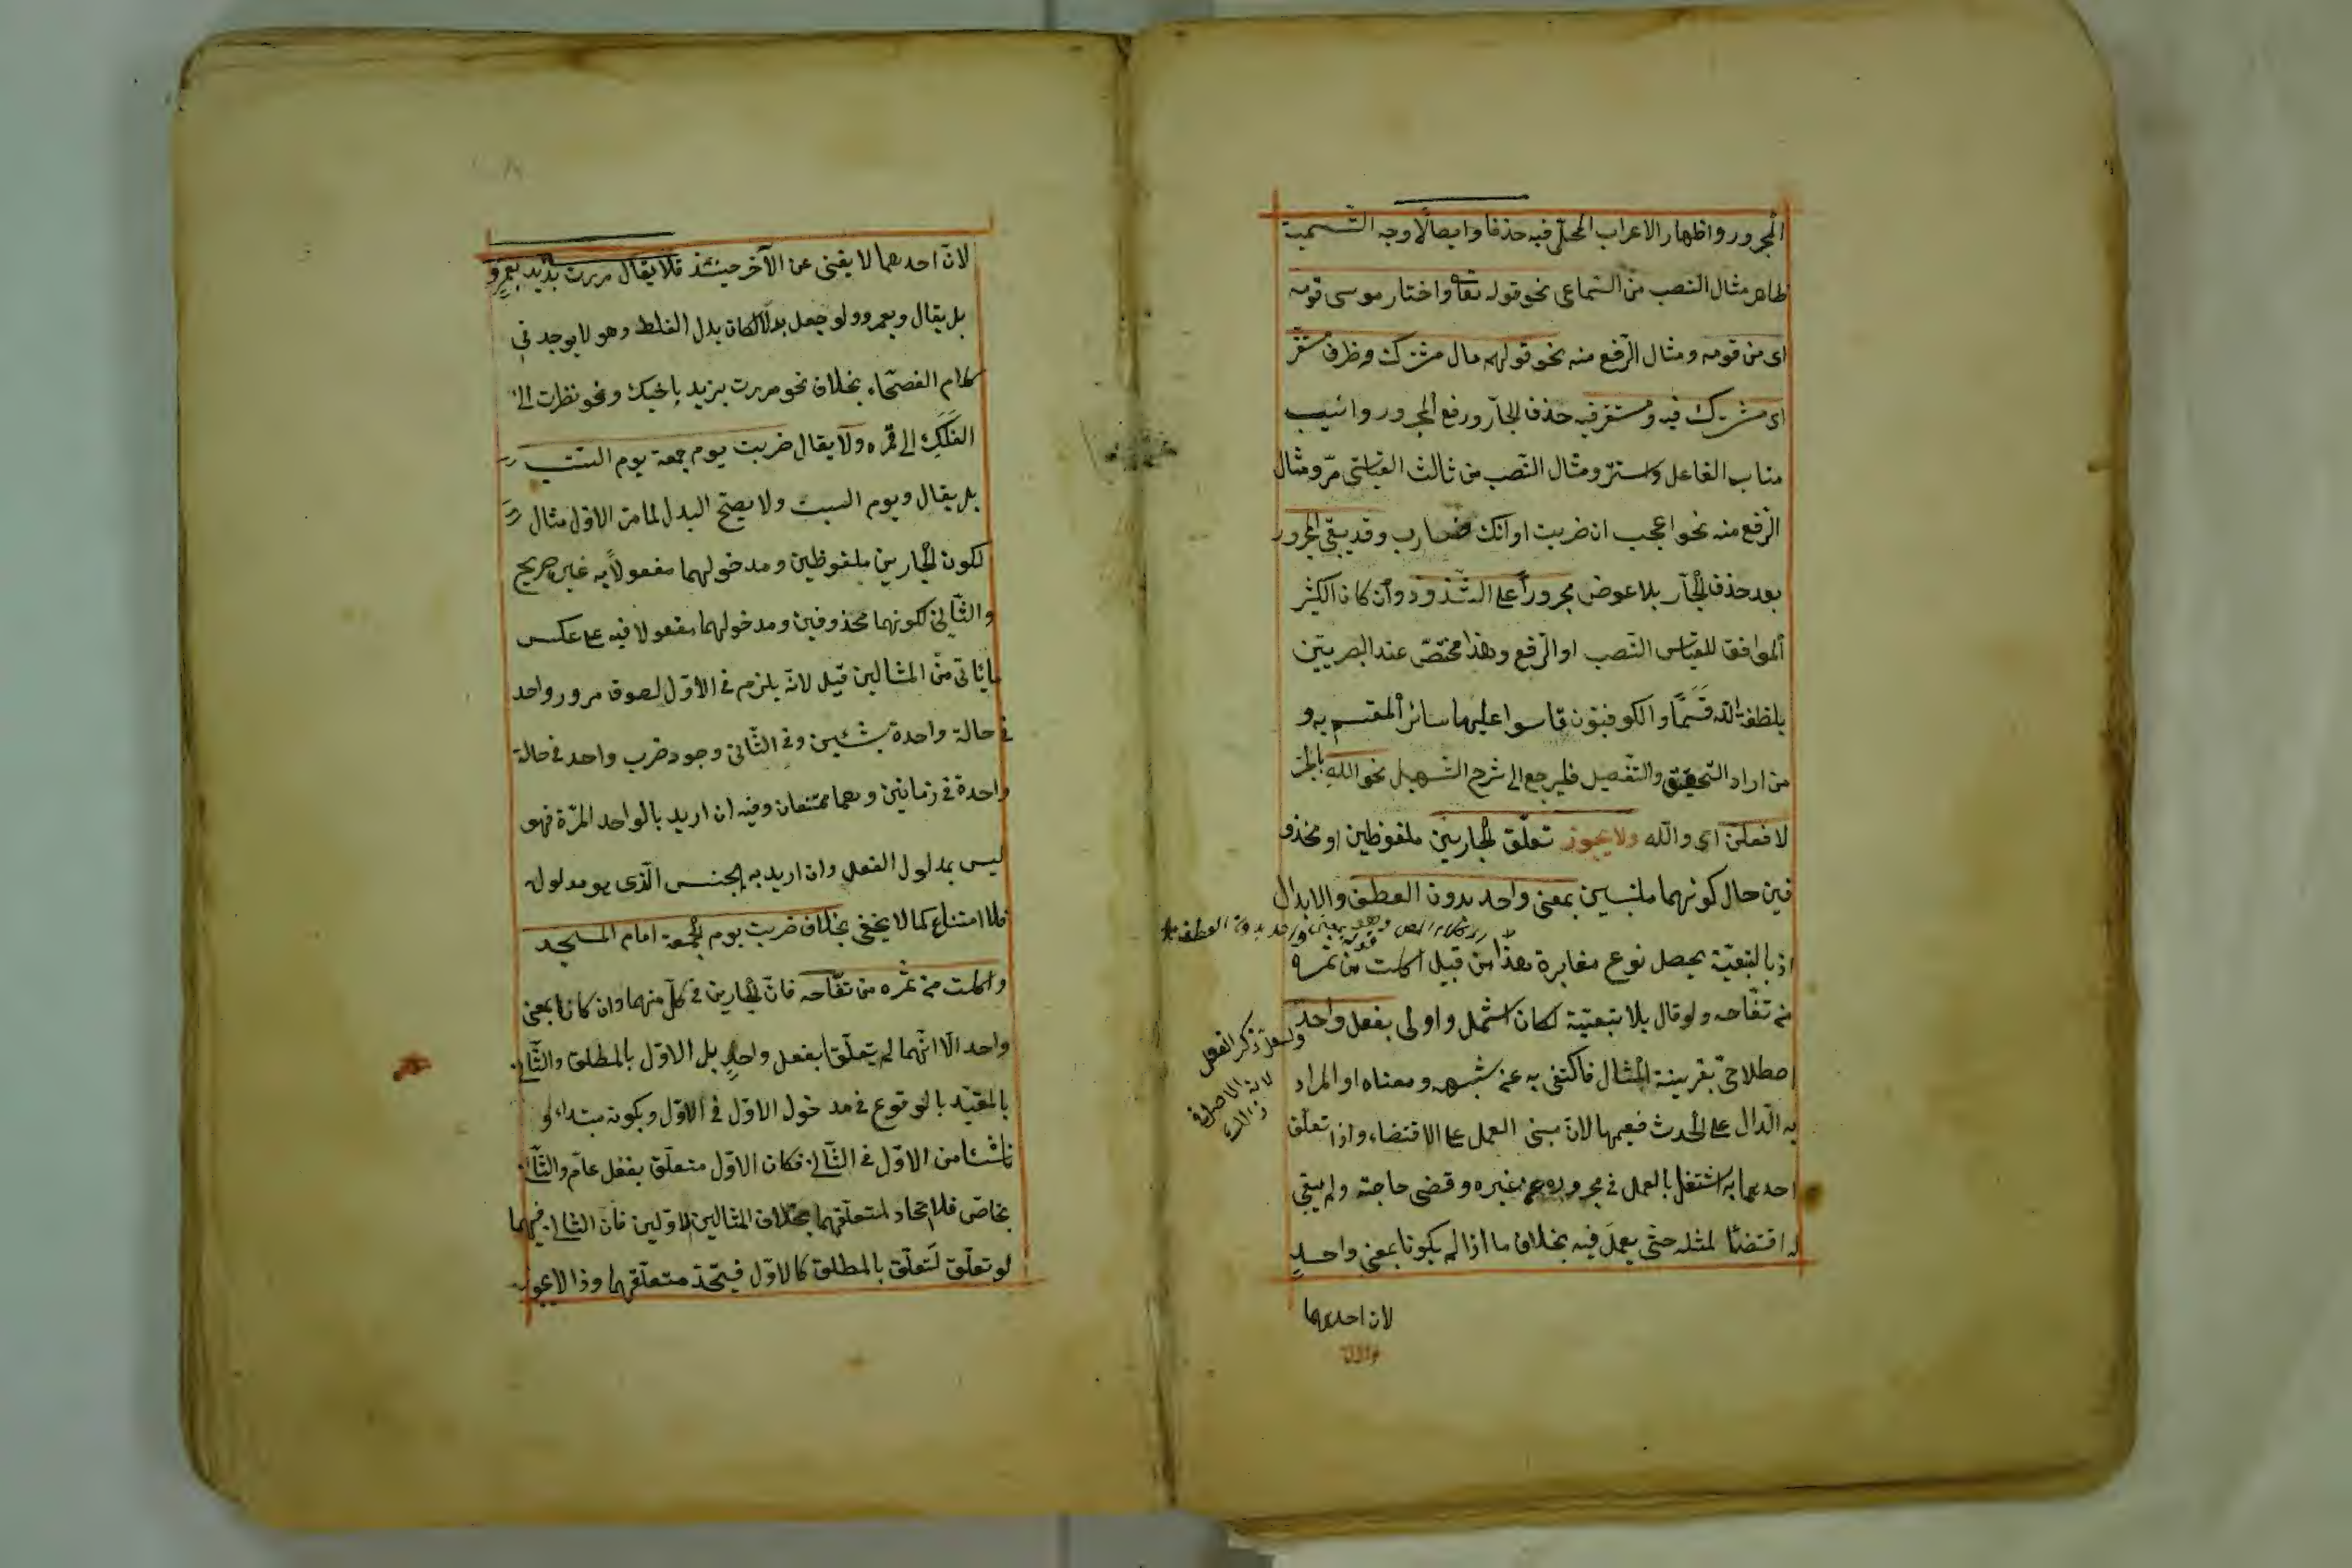 المجرور واظهار الاعراب المحلّى فيه حذفا وايصالًا وجه التّسمية
ظاهر مثال النّصب من السّماعى نحو قوله تعالى واختار موسى قومه
اى من قومه ومثال الرّفع منه نحو قولهم مال مشترك وظرف مستقرّ
اى مشترك فيه ومستقر فيه حذف الجارّ ورفع المجرور وانيب
مناب الفاعل واستتر ومثال النّصب من ثالث القياسىّ مرّ ومثال
الرّفع منه نحو اعجب ان ضربت او انّك ضارب وقد يبقى المجرور
بعد حذف الجارّ بلا عوض مجروراً على الشّذوذ وان كان الكثير
الموافق للقياس النّصب او الرّفع وهذا مختصّ عند البصريّين
بلفظة الله قَسَمًا والكوفيّون قاسوا عليها سائر المقسم به و
من اراد التّحقيق والتّفصيل فليرجع الى شرح التّسهيل نحو اللهِ بالجرّ
لافعلنّ اى والله ولا يجوز تعلّق الجارّين ملفوظين او محذو
فين حال كونهما ملتبسين بمعنى واحد بدون العطف والابدال
اذ بالتبعيّة يحصل نوع مغايرة هذا من قبيل اكلت من ثمره
من تفّاحه ولو قال بلا تبعيّة لكان اشمل واولى بفعل واحد
اصطلاحىّ بقرينة المثال فاكتفى به عن شبهه ومعناه او المراد
به الدّال على الحدث فيعمها لانّ مبنى العمل على الاقتضاء واذا تعلّق
احدهما به اشتغل بالعمل فى مجروره عن غيره وقضى حاجته ولم يبقى
له اقتضاء لمثله حتّى يعمل فيه بخلاف ما اذا لم يكونا بمعنى واحدٍ
بمعنى واحد بدون العطف
ذكر الفعل
لانه الاصل فى
لان احدهما
لانّ احدهما لا يغنى عن الآخر حينئذ فلا يقال مررت بزيد بعمرو
بل يقال وبعمرو ولو جعل بدلًا لكان بدل الغلط وهو لا يوجد فى
كلام الفصحاء بخلاف نحو مررت بزيد باخيك ونحو نظرت الى
الفلك الى قمره ولا يقال ضربت يوم جمعة يوم السّبت
بل يقال ويوم السبت ولا يصحّ البدل لما مرّ الاوّل مثال
لكون الجارّين ملفوظين ومدخولهما مفعولًا به غير صريح
والثّانى لكونهما محذوفين ومدخولهما مفعولا فيه على عكس
ما يأتى من المثالين قيل لانّه يلزم فى الاوّل لصوق مرور واحد
فى حالة واحدة بشيئين وفى الثّانى وجود ضرب واحد فى حالة
واحدة فى زمانين وهما ممتنعان وفيه ان اريد بالواحد المرّة فهو
ليس بمدلول الفعل وان اريد به الجنس الّذى هو مدلوله
فلا امتناع كما لا يخفى بخلاف ضربت يوم الجمعة امام المسجد
واكلت من ثمره من تفّاحه فانّ الجارّين فى كلّ منهما وان كانا بمعنى
واحد الّا انّهما لم يتعلّقا بفعل واحدٍ بل الاوّل بالمطلق والثّانى
بالمقيّد بالوقوع فى مدخول الاوّل فى الاوّل وبكونه مبتدأ و
ناشئا من الاوّل فى الثّانى فكان الاوّل متعلّق بفعل عامّ والثّانى
بخاصّ فلا اتّحاد لمتعلّقهما بخلاف المثالين الاوّلين فانّ الثانى فيهما
لو تعلّق لتعلّق بالمطلق كالاوّل فيتّحد متعلّقهما وذا لا يجوز